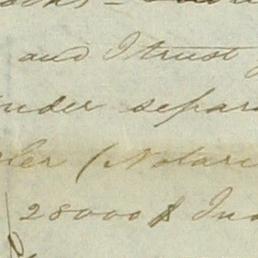 and I trust
under separ
ler (Notari
28000 $ In